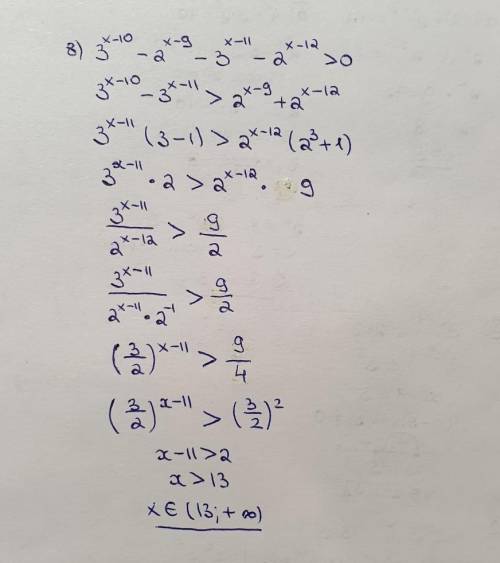 8) 3^{x-10} - 2^{x-9} - 3^{x-11} - 2^{x-12} > 0
3^{x-10} - 3^{x-11} > 2^{x-9} + 2^{x-12}
3^{x-11} (3-1) > 2^{x-12} (2^3+1)
3^{x-11} · 2 > 2^{x-12} · 9
\frac{3^{x-11}}{2^{x-12}} > \frac{9}{2}
\frac{3^{x-11}}{2^{x-11} · 2^{-1}} > \frac{9}{2}
(\frac{3}{2})^{x-11} > \frac{9}{4}
(\frac{3}{2})^{x-11} > (\frac{3}{2})^2
x-11>2
x>13
x∈(13;+∞)